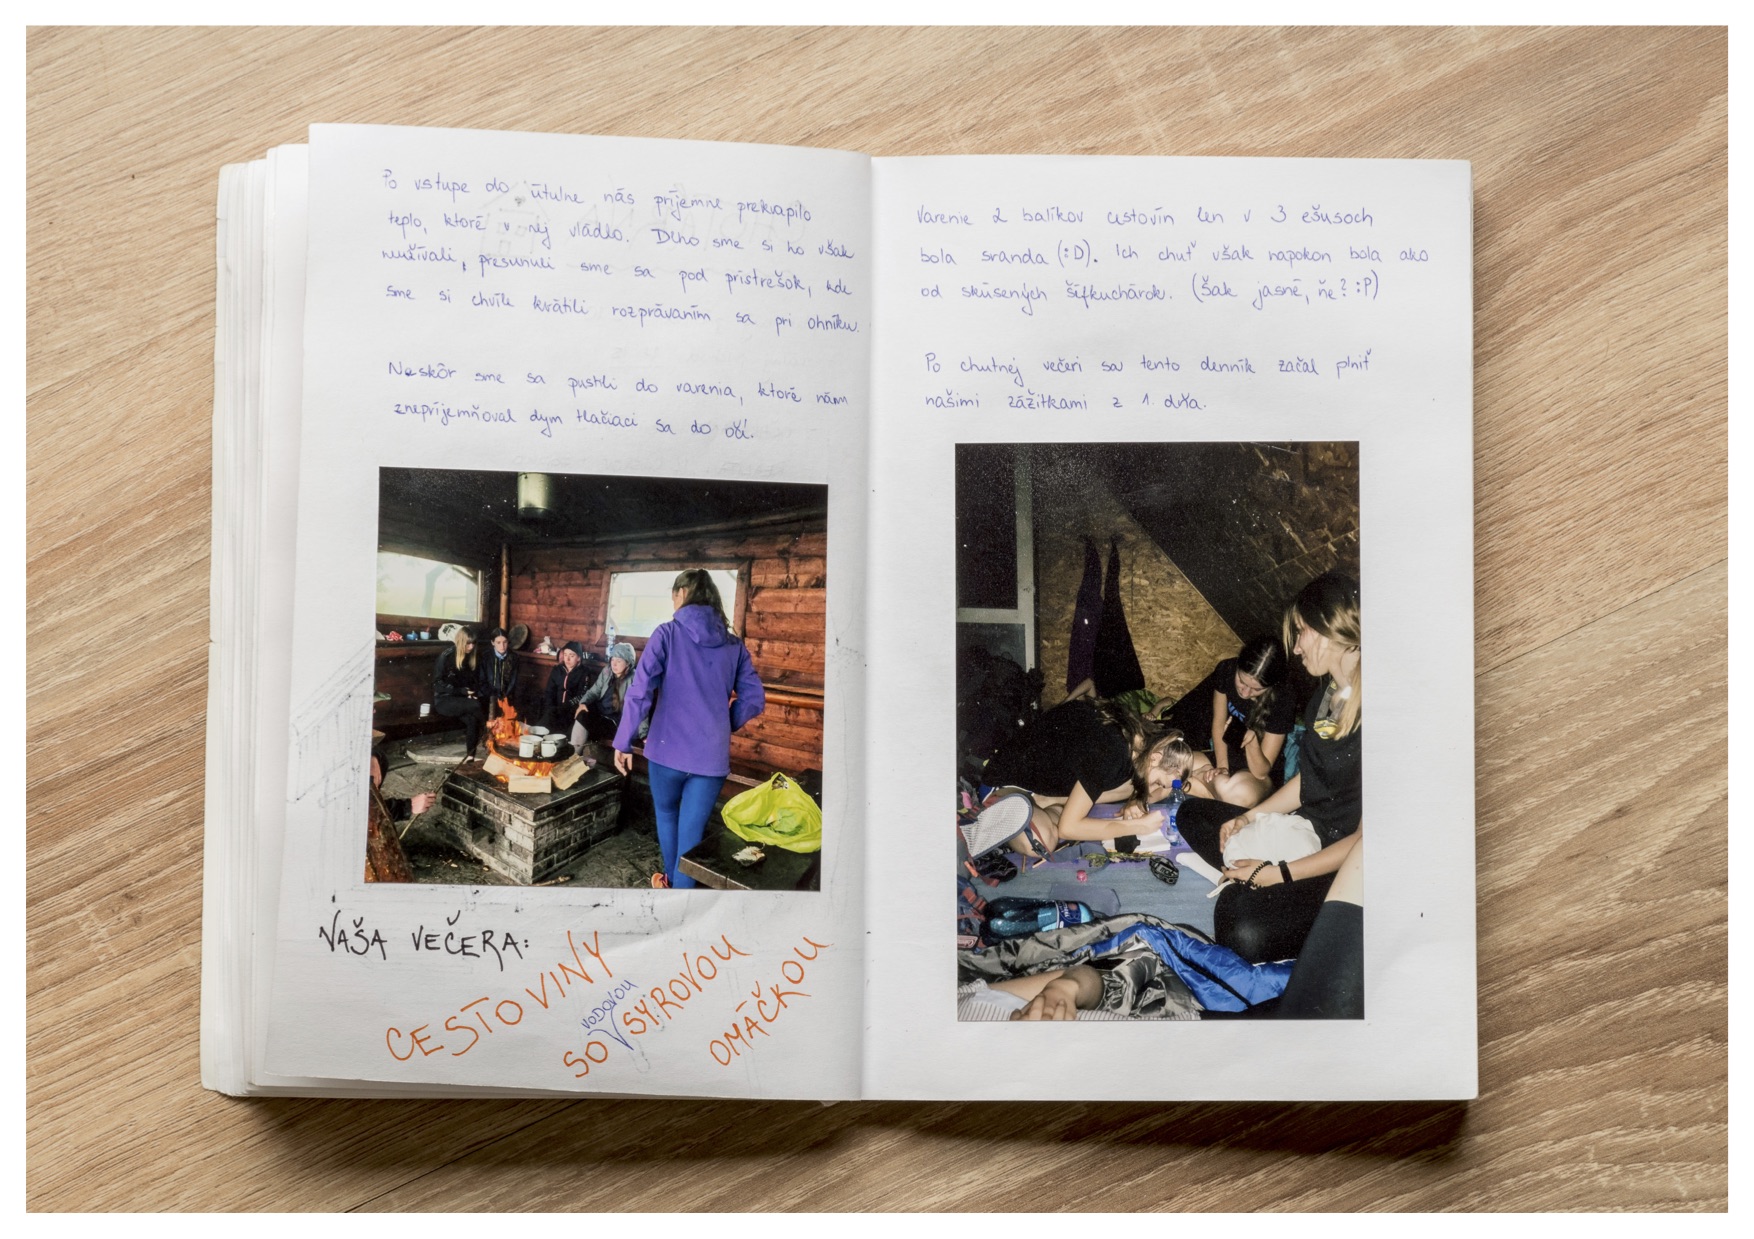 Po vstupe do útulne nás príjemne prekvapilo
teplo, ktoré v nej vládlo. Dlho sme si ho však
neužívali, presunuli sme sa pod prístrešok, kde
sme si chvíle krátili rozprávaním sa pri ohníku.
Neskôr sme sa pustili do varenia, ktoré nám
znepríjemňoval dym tlačiaci sa do očí.
NAŠA VEČERA:
CESTOVINY
SO VODOVOU SYROVOU
OMÁČKOU
Varenie 2 balíkov cestovín len v 3 ešusoch
bola sranda (:D). Ich chuť však napokon bola ako
od skúsených šéfkuchárok. (Šak jasné, ňe? :P)
Po chutnej večeri sa tento denník začal plniť
našimi zážitkami z 1. dňa.